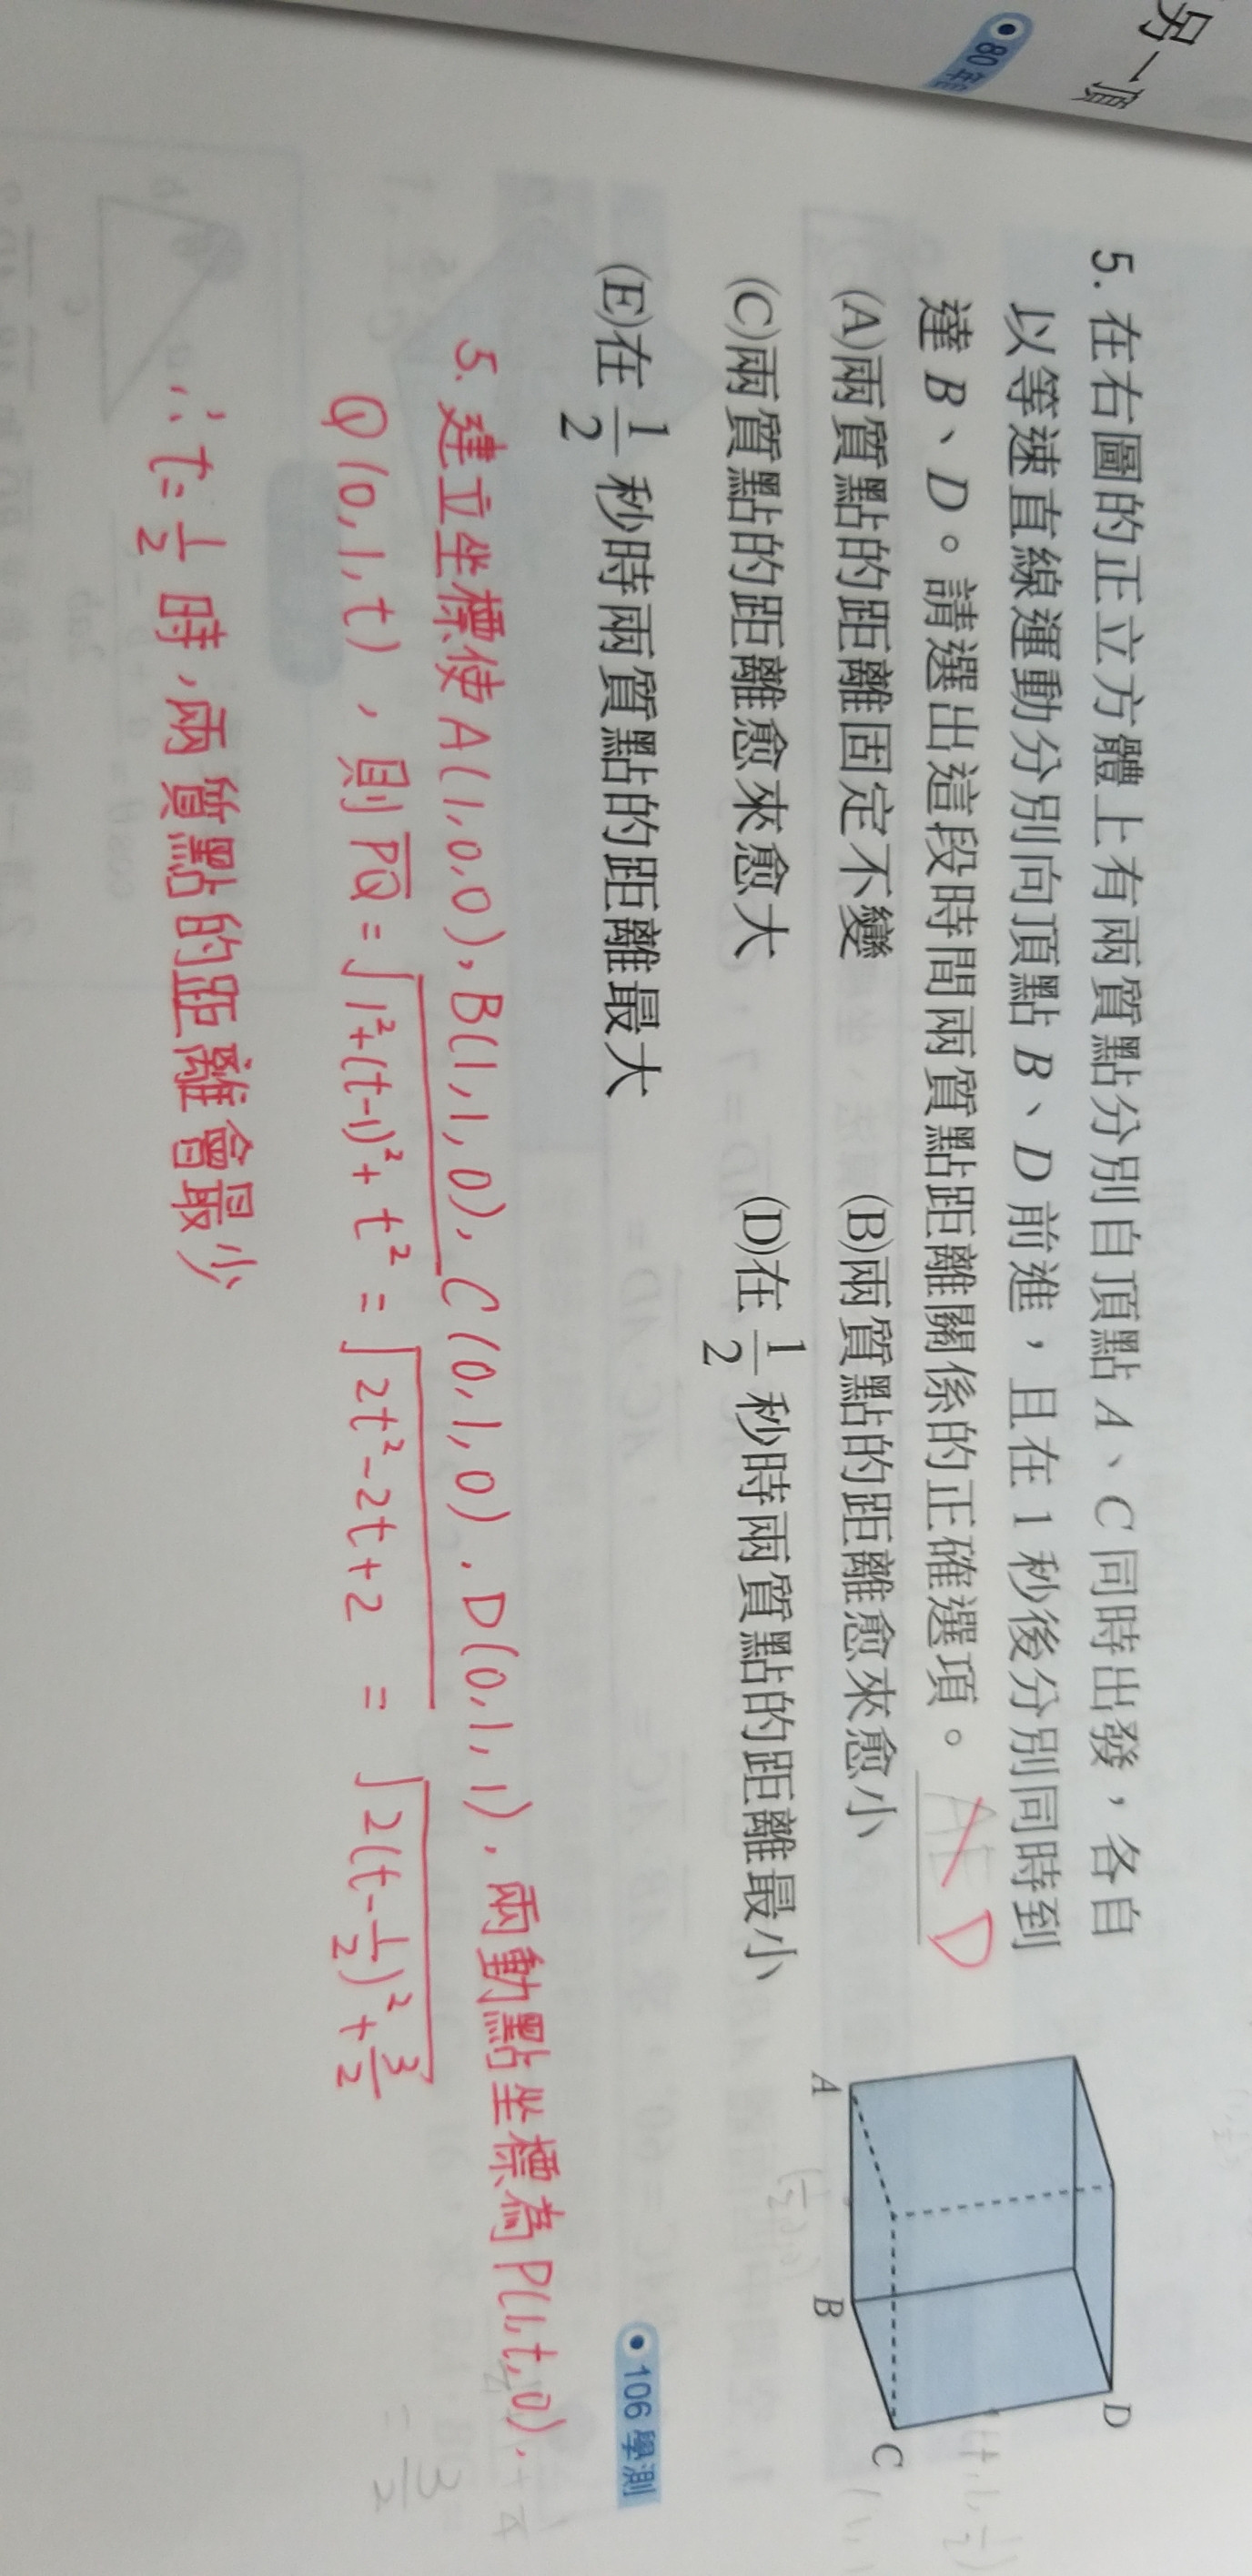 另一頂
80 年
5. 在右圖的正立方體上有兩質點分別自頂點 A、C 同時出發，各自
以等速直線運動分別向頂點 B、D 前進，且在 1 秒後分別同時到
達 B、D。請選出這段時間兩質點距離關係的正確選項。 AE D
(A)兩質點的距離固定不變 (B)兩質點的距離愈來愈小
(C)兩質點的距離愈來愈大 (D)在 1/2 秒時兩質點的距離最小
(E)在 1/2 秒時兩質點的距離最大
106 學測
A
B
C
D
5. 建立坐標使 A(1,0,0), B(1,1,0), C(0,1,0), D(0,1,1), 兩動點坐標為 P(1,t,0),
Q(0,1,t), 則 PQ = √(1²+(t-1)²+t²) = √(2t²-2t+2) = √(2(t-1/2)²+3/2)
∴ t=1/2 時, 兩質點的距離會最少
= 3/2